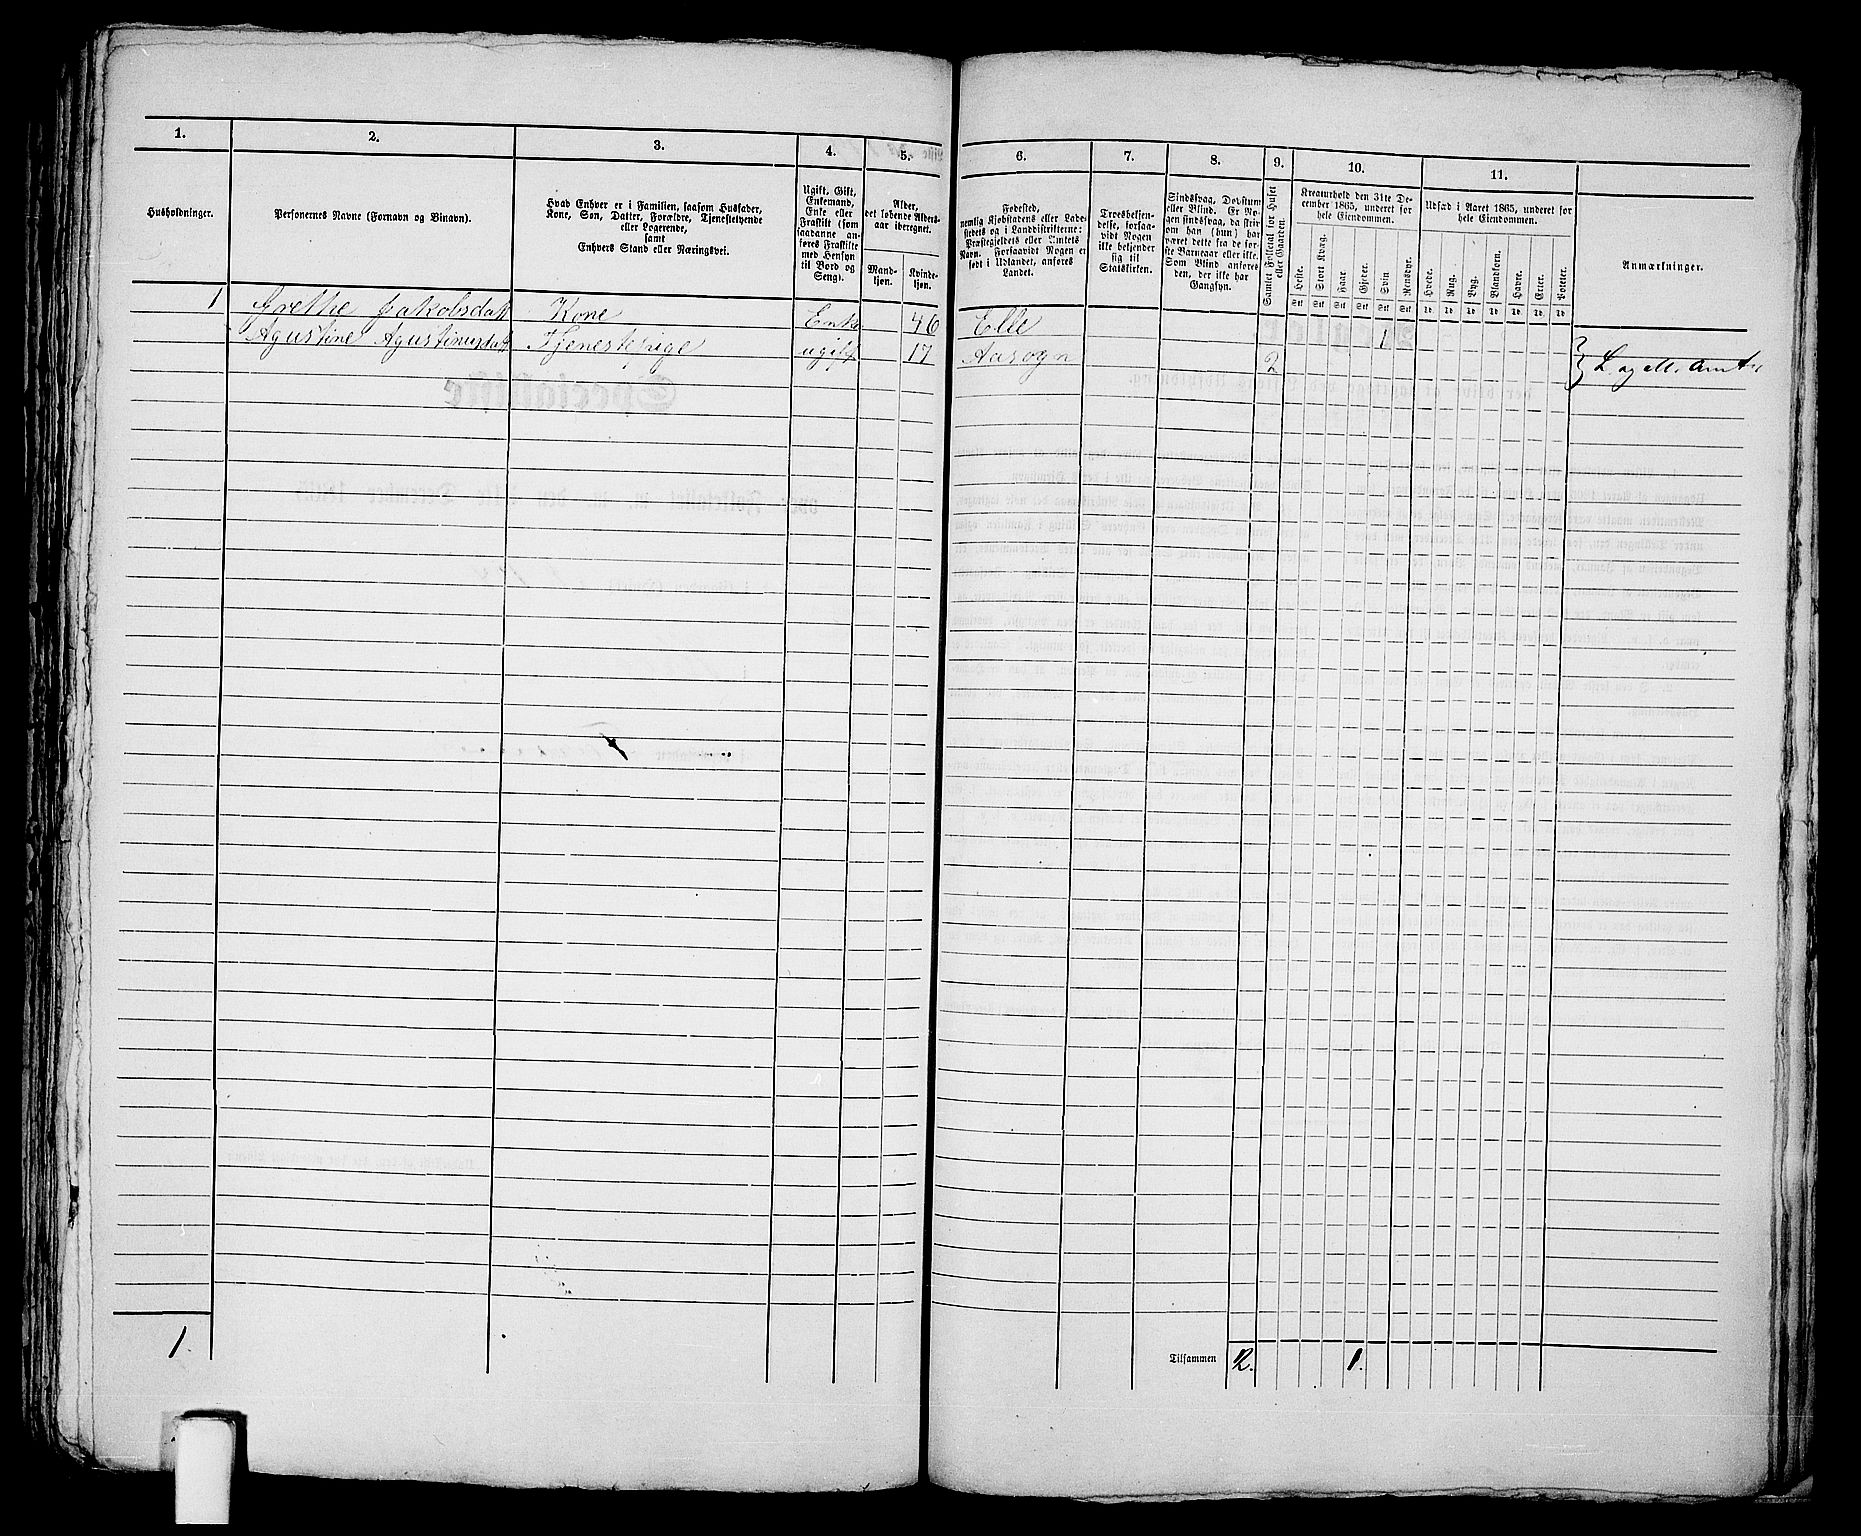 1. 2. 3. 4. 5. 6. 7. 8. 9. 10. 11.
Husholdninger.
Personernes Navne (Fornavn og Binavn).
Hvad Enhver er i Familien, saasom Husfader,
Kone, Søn, Datter, Forældre, Tjenestetyende
eller Logerende,
samt
Enhvers Stand eller Næringsvei.
Ugift, Gift,
Enkemand,
Enke eller
Fraskilt (som
saadanne an-
føres Fraskilte
med Hensyn
til Bord og
Seng).
Alder,
det løbende Alders-
aar iberegnet.
Mand-
kjøn.
Kvinde-
kjøn.
Fødested,
nemlig Kjøbstadens eller Lade-
stedets og i Landdistrikterne:
Præstegjeldets eller Amtets
Navn. Forsaavidt Nogen er
født i Udlandet, anføres
Landet.
Troesbekjen-
delse, forsaa-
vidt Nogen
ikke bekjender
sig til
Statskirken.
Sindssvag, Døvstum
eller Blind. Er No-
gen sindssvag, da skri-
ves om han (hun) har
været dette fra de før-
ste Barneaar eller ikke.
Som Blind anføres
den, der ikke har
Gangsyn.
Samlet Folketal for Huset
eller Gaarden.
Kreaturhold den 31te De-
cember 1865, underet for
hele Eiendommen.
Heste. Stort Kvæg. Faar. Gjeter. Svin. Rensdyr.
Stk Stk Stk Stk Stk Stk
Udsæd i Aaret 1865, underet for
hele Eiendommen.
Hvede. Rug. Byg. Blandkorn. Havre. Erter. Poteter.
Td. Td. Td. Td. Td. Td. Td.
Anmærkninger.
1 Grethe Jakobsdatt Kone Enke 46 Elle 1
Agustine Agustinusdatt Tjenestepige ugift 17 Aasogn 2
1. Tilsammen 2. 1.